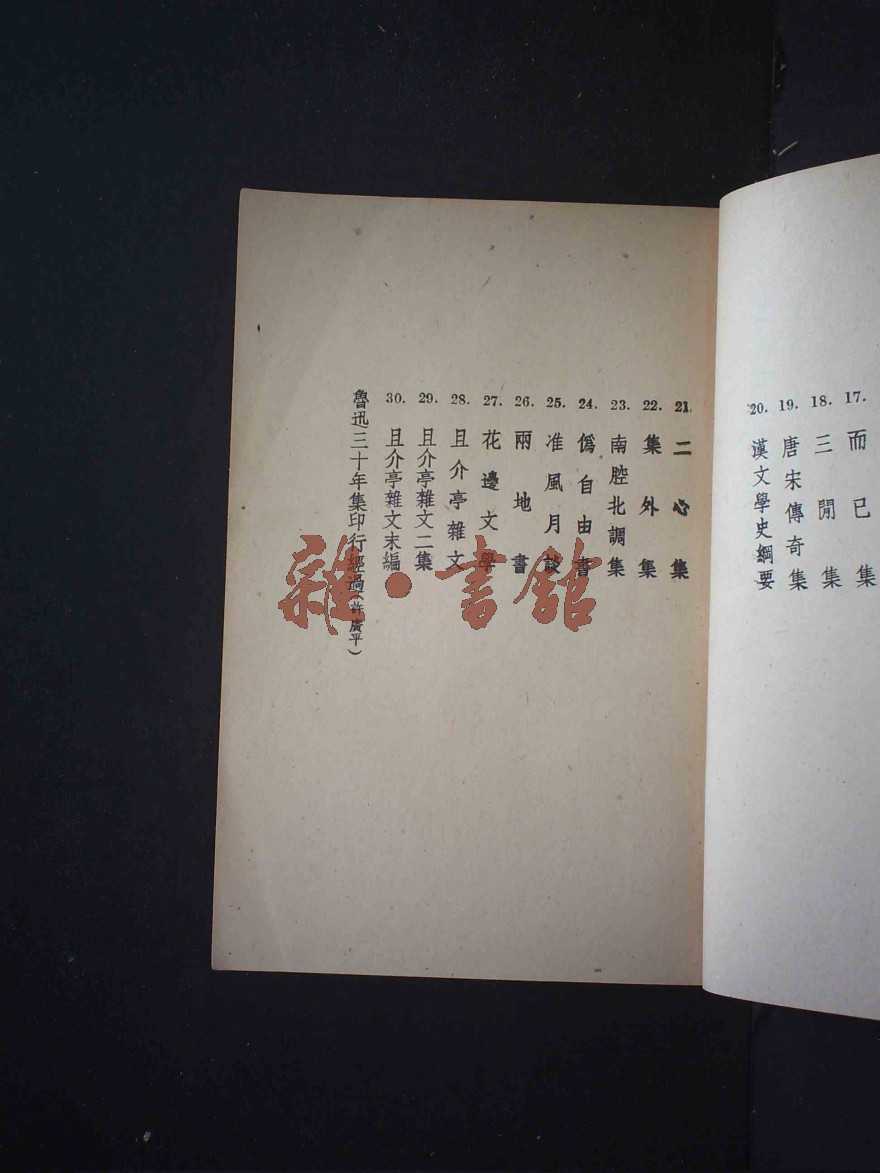 17. 而已集
18. 三閒集
19. 唐宋傳奇集
20. 漢文學史綱要
21. 二心集
22. 集外集
23. 南腔北調集
24. 僞自由書
25. 准風月談
26. 兩地書
27. 花邊文學
28. 且介亭雜文
29. 且介亭雜文二集
30. 且介亭雜文末編
魯迅三十年集印行經過(許廣平)
雜·書館